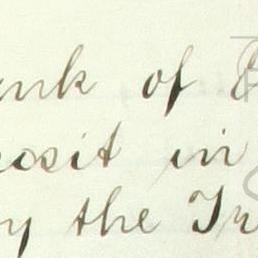 ank of
posit in
by the Tr